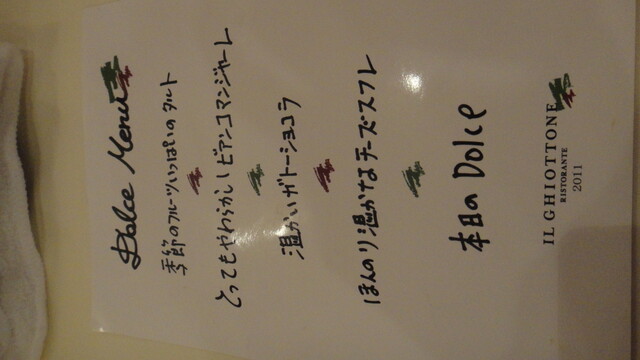 Dolce Menu
季節のフルーツいっぱいのタルト
とってもやわらかしいビアンコマンジャーレ
温かいガトーショコラ
ほんのり温かなチーズスフレ
本日のDolce
IL GHIOTTONE
RISTORANTE
2011